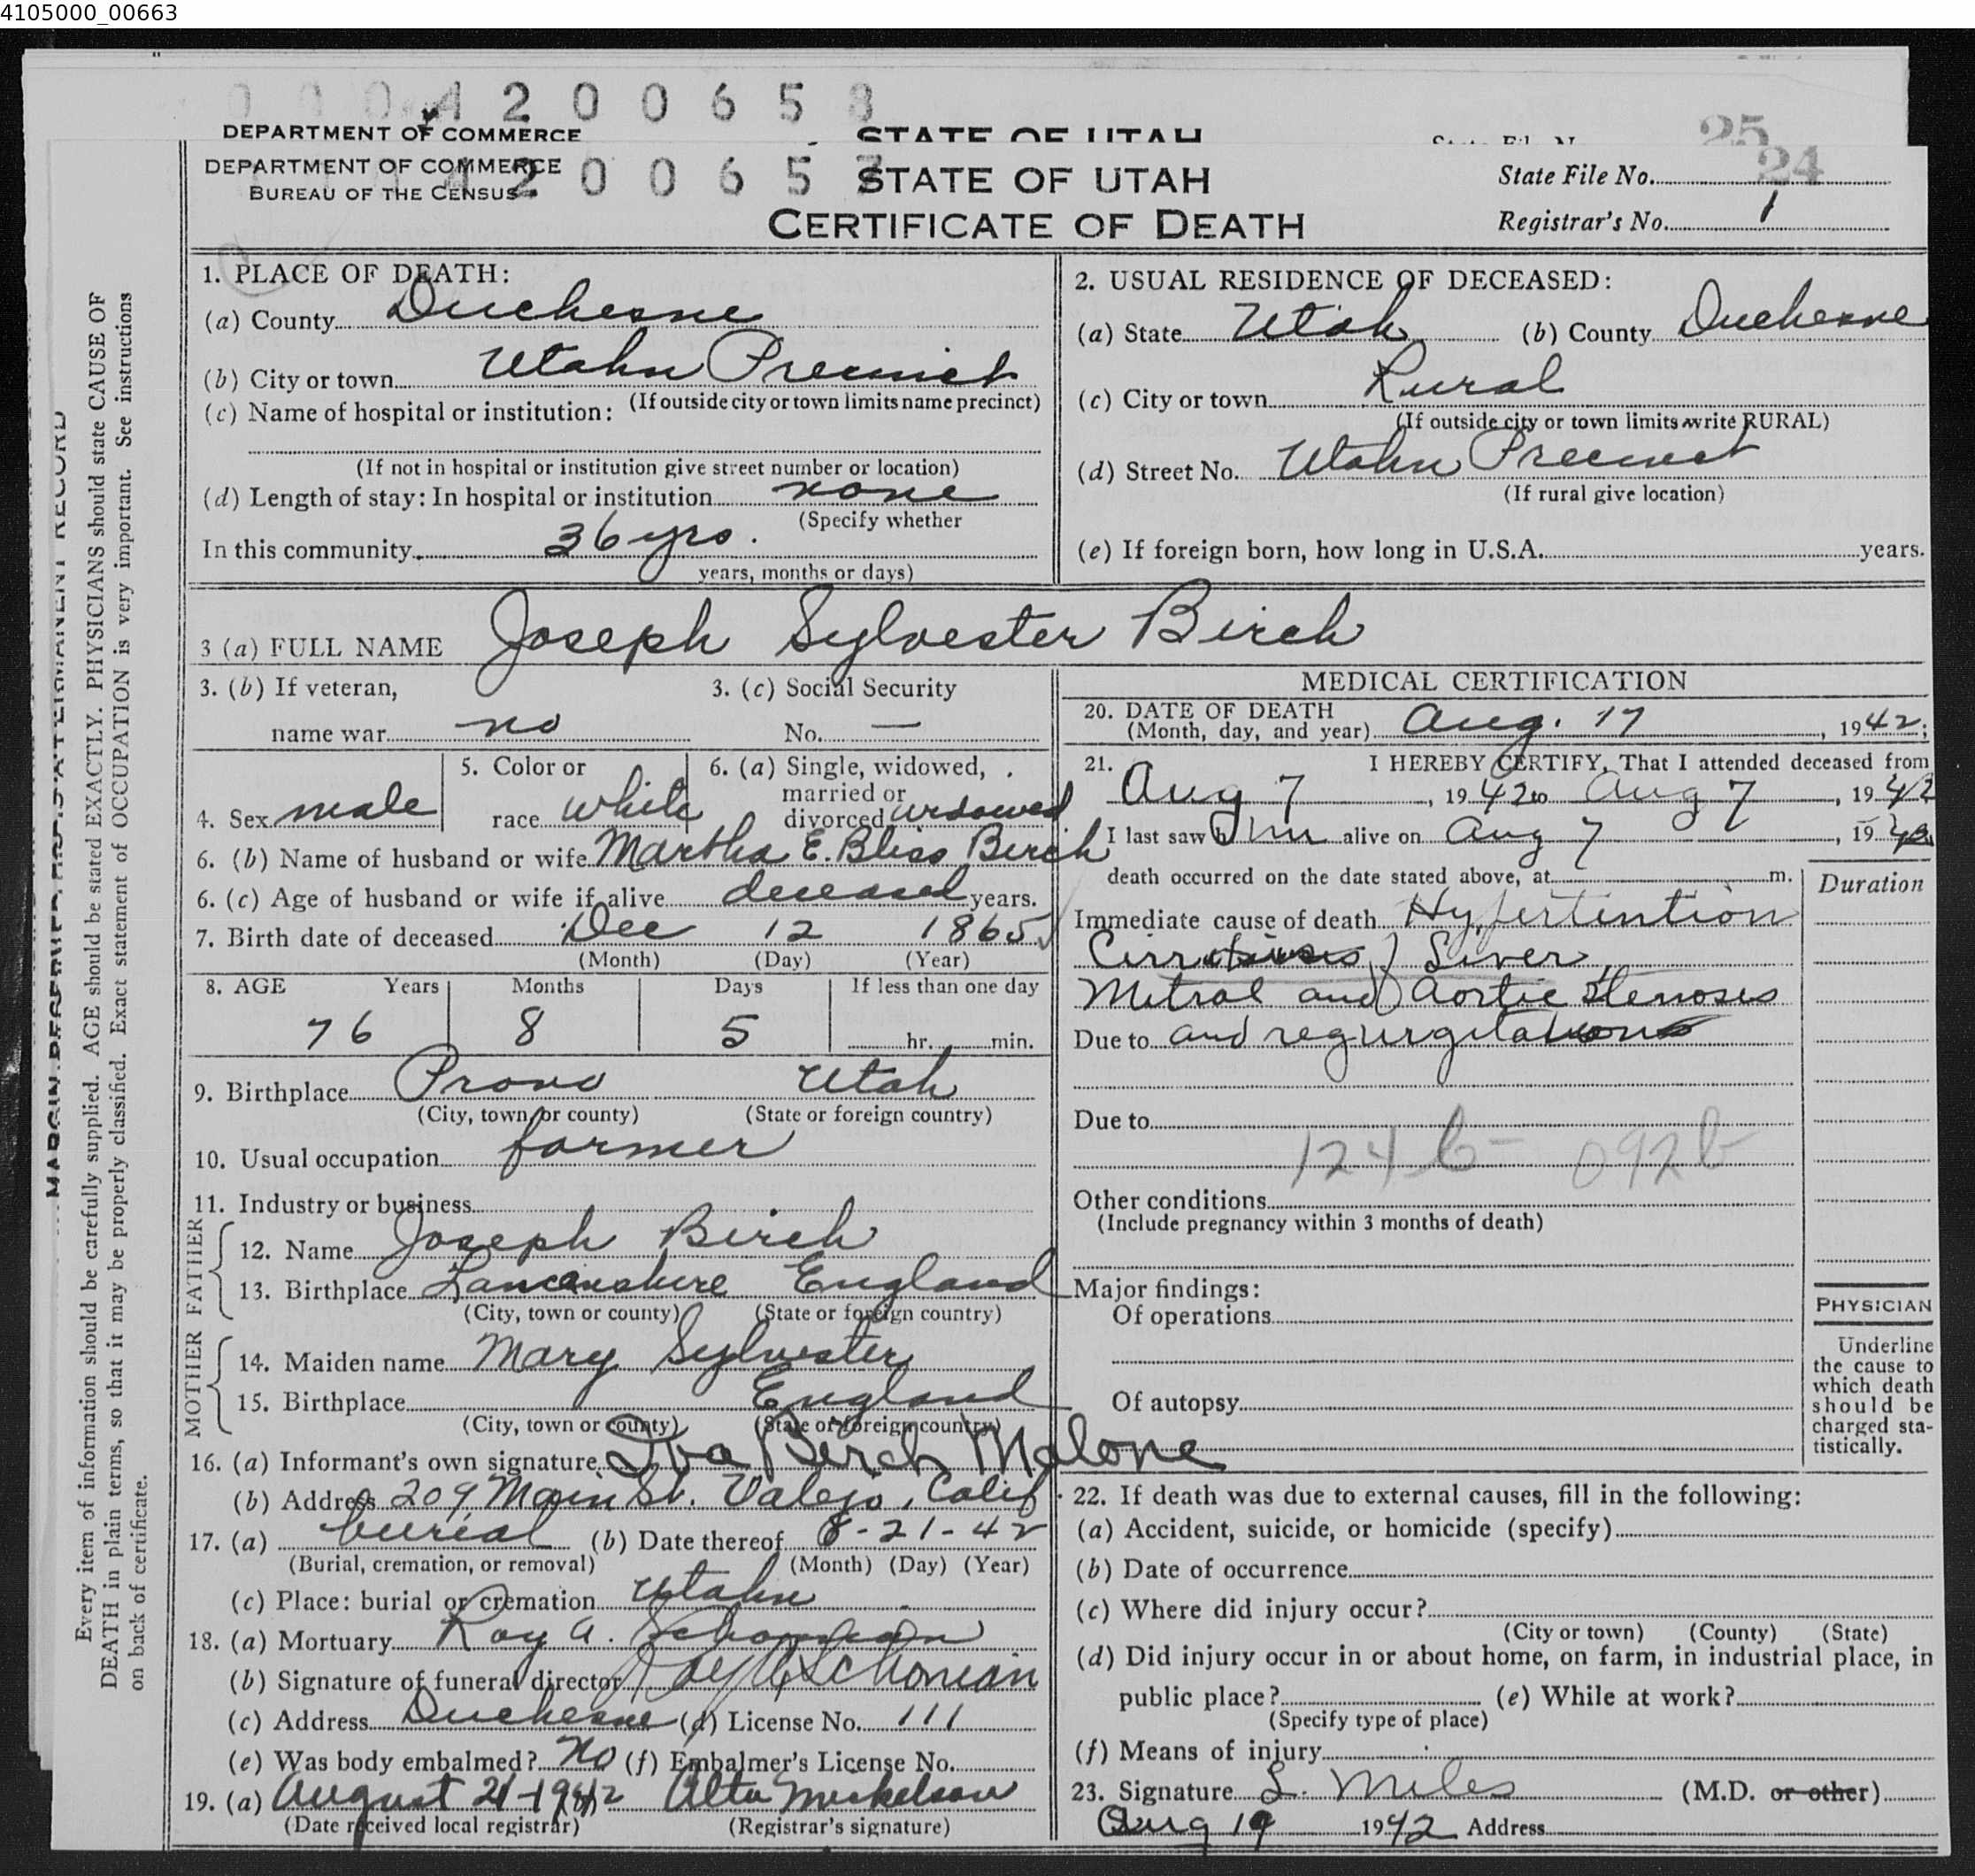 4105000_00663
4 2 0 0 6 5 8
DEPARTMENT OF COMMERCE
STATE OF UTAH
25
DEPARTMENT OF COMMERCE
4 2 0 0 6 5 7
BUREAU OF THE CENSUS
STATE OF UTAH
CERTIFICATE OF DEATH
State File No. 24
Registrar's No. 1
MARGIN RESERVED
PERMANENT RECORD
Every item of information should be carefully supplied. AGE should be stated EXACTLY. PHYSICIANS should state CAUSE OF
DEATH in plain terms, so that it may be properly classified. Exact statement of OCCUPATION is very important. See instructions
on back of certificate.
1. PLACE OF DEATH:
(a) County Duchesne
(b) City or town Utahn Precinct
(If outside city or town limits name precinct)
(c) Name of hospital or institution:
(If not in hospital or institution give street number or location)
(d) Length of stay: In hospital or institution none
(Specify whether
In this community 36 yrs.
years, months or days)
2. USUAL RESIDENCE OF DECEASED:
(a) State Utah (b) County Duchesne
(c) City or town Rural
(If outside city or town limits write RURAL)
(d) Street No. Utahn Precinct
(If rural give location)
(e) If foreign born, how long in U.S.A. years.
3 (a) FULL NAME Joseph Sylvester Birch
3. (b) If veteran,
name war no
3. (c) Social Security
No. —
4. Sex male
5. Color or
race white
6. (a) Single, widowed,
married or
divorced widowed
6. (b) Name of husband or wife Martha E. Bliss Birch
6. (c) Age of husband or wife if alive deceased years.
7. Birth date of deceased Dec 12 1865
(Month) (Day) (Year)
8. AGE Years Months Days If less than one day
76 8 5 hr. min.
9. Birthplace Provo Utah
(City, town or county) (State or foreign country)
10. Usual occupation farmer
11. Industry or business
FATHER
12. Name Joseph Birch
13. Birthplace Lancanshire England
(City, town or county) (State or foreign country)
MOTHER
14. Maiden name Mary Sylvester
15. Birthplace England
(City, town or county) (State or foreign country)
16. (a) Informant's own signature Iva Birch Malone
(b) Address 209 Main St. Valejo, Calif.
17. (a) burial (b) Date thereof 8-21-42
(Burial, cremation, or removal) (Month) (Day) (Year)
(c) Place: burial or cremation Utahn
18. (a) Mortuary Roy A. Schonian
(b) Signature of funeral director Roy A Schonian
(c) Address Duchesne (d) License No. 111
(e) Was body embalmed? No (f) Embalmer's License No.
19. (a) August 21-1942 Alta Mickelson
(Date received local registrar) (Registrar's signature)
MEDICAL CERTIFICATION
20. DATE OF DEATH
(Month, day, and year) Aug. 17, 1942;
21. I HEREBY CERTIFY, That I attended deceased from
Aug 7, 1942 to Aug 7, 1942
I last saw him alive on Aug 7, 1942
death occurred on the date stated above, at m.
Duration
Immediate cause of death Hypertention
Cirrhosis of Liver,
Mitral and Aortic Stenosis
Due to and regurgitations
Due to
124 b 092b
Other conditions
(Include pregnancy within 3 months of death)
Major findings:
Of operations
Of autopsy
PHYSICIAN
Underline
the cause to
which death
should be
charged sta-
tistically.
22. If death was due to external causes, fill in the following:
(a) Accident, suicide, or homicide (specify)
(b) Date of occurrence
(c) Where did injury occur?
(City or town) (County) (State)
(d) Did injury occur in or about home, on farm, in industrial place, in
public place? (e) While at work?
(Specify type of place)
(f) Means of injury
23. Signature L. Miles (M.D. or other)
Aug 19 1942 Address